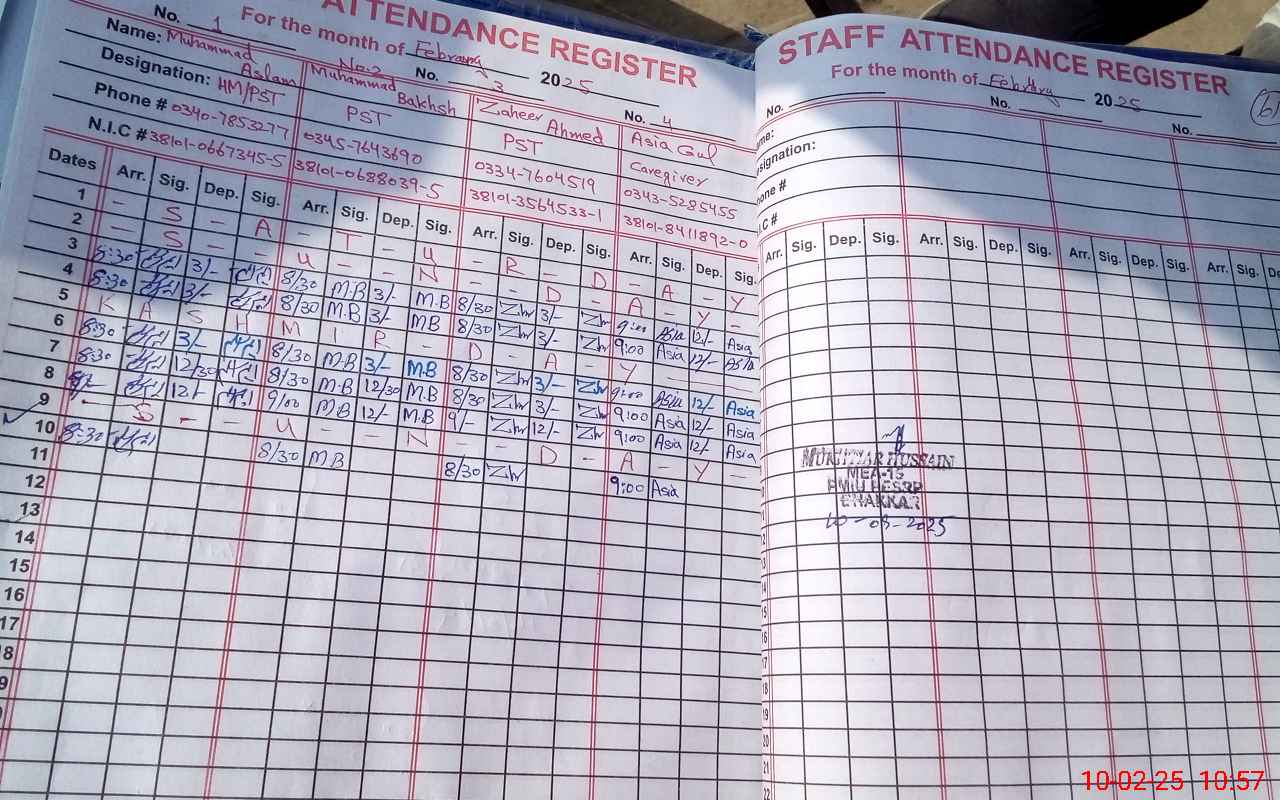 ATTENDANCE REGISTER
For the month of Febrary 2025
No. 1 No. 2 No. 3 No. 4
Name: Muhammad Aslam Muhammad Bakhsh Zaheer Ahmed Asia Gul
Designation: HM/PST PST PST Caregiver
Phone # 0340-7853277 0345-7643690 0334-7604519 0343-5285455
N.I.C # 38101-0667345-5 38101-0688039-5 38101-3564533-1 38101-8411892-0
Dates Arr. Sig. Dep. Sig. Arr. Sig. Dep. Sig. Arr. Sig. Dep. Sig. Arr. Sig. Dep. Sig.
1 - S - A - T - U - R - D - A - Y
2 - S - - U - - N - - D - A - Y -
3 8:30 3/- 8/30 M.B 3/- M.B 8/30 Zhr 3/- Zhr 9:00 Asia 12/- Asia
4 8:30 3/- 8/30 M.B 3/- MB 8/30 Zhr 3/- Zhr 9:00 Asia 12/- Asia
5 K A S H M I R - D - A - Y
6 8:30 3/- 8/30 M.B 3/- M.B 8/30 Zhr 3/- Zhr 9:00 Asia 12/- Asia
7 8:30 12/30 8/30 M.B 12/30 M.B 8/30 Zhr 3/- Zhr 9:00 Asia 12/- Asia
8 12/- 9/00 MB 12/- M.B 9/- Zhr 12/- Zhr 9:00 Asia 12/- Asia
9 - S - - U - - N - - D - A - Y -
10 8:30 8/30 MB 8/30 Zhr 9:00 Asia
11
12
13
14
15
16
17
STAFF ATTENDANCE REGISTER
For the month of February 2025
No. No. No.
Arr. Sig. Dep. Sig. Arr. Sig. Dep. Sig. Arr. Sig. Dep. Sig. Arr. Sig.
MUKHTIAR HUSSAIN
MEA-15
13
14
15
16
17
18
19
20
21
22
10-02-25 10:57